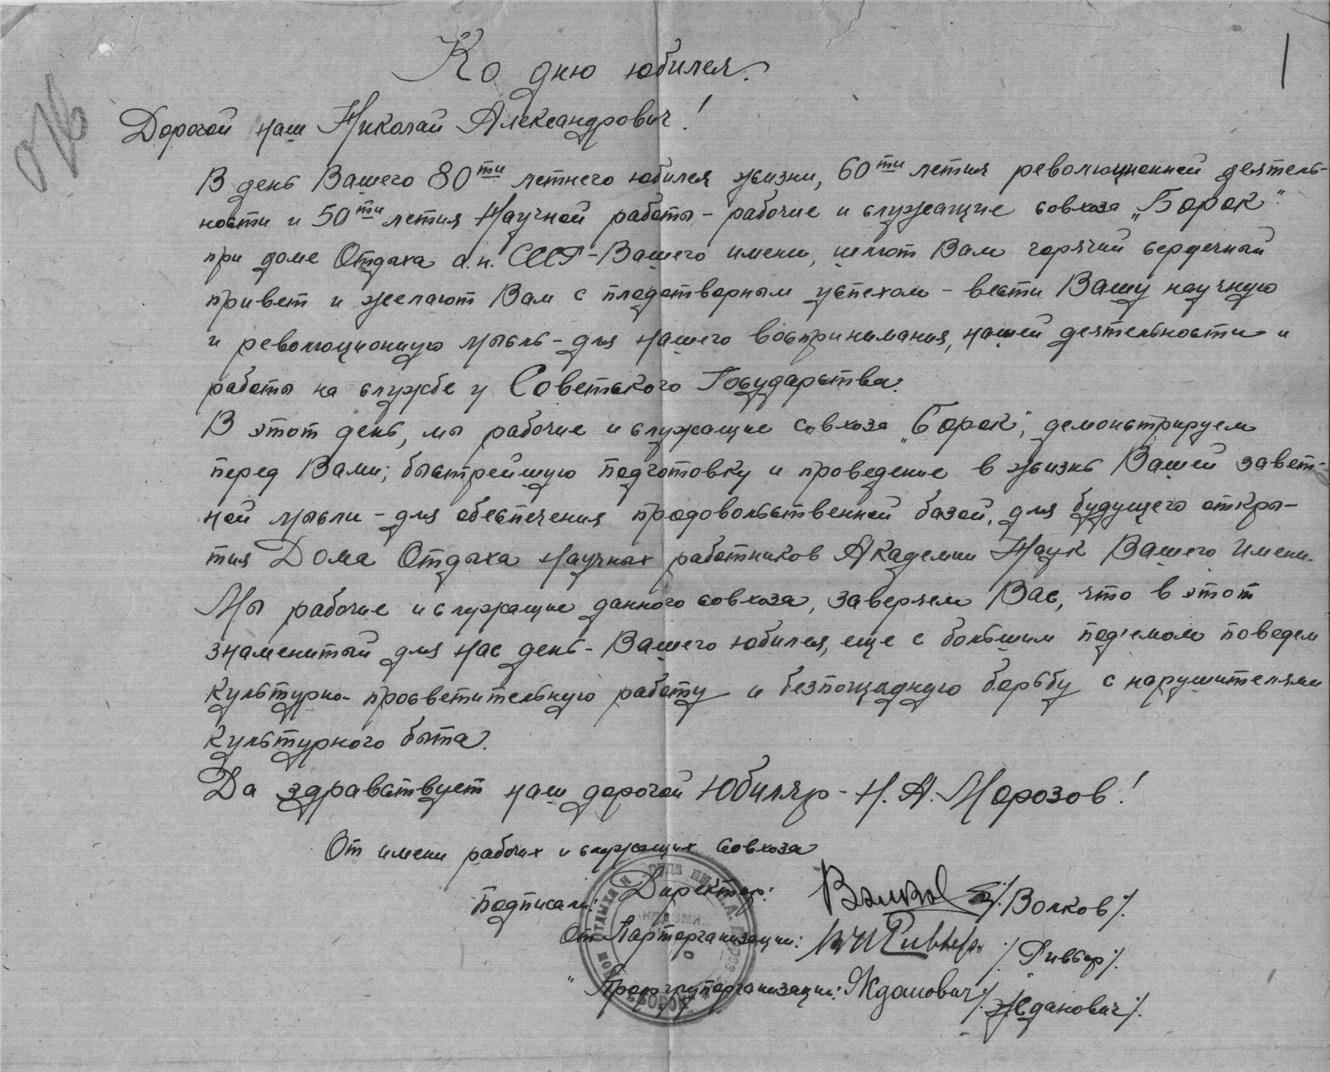 Ко дню юбилея.
Дорогой наш Николай Александрович!
В день Вашего 80ти летнего юбилея жизни, 60ти летия революционной деятель-
ности и 50ти летия Научной работы - рабочие и служащие совхоза „Борок"
при доме Отдыха а.н. СССР - Вашего имени, шлют Вам горячий сердечный
привет и желают Вам с плодотворным успехом - вести Вашу научную
и революционную мысль - для нашего воспринимания, нашей деятельности и
работы на службе у Советского Государства.
В этот день, мы рабочие и служащие совхоза „Борок", демонстрируем
перед Вами; быстрейшую подготовку и проведение в жизнь Вашей завет-
ной мысли - для обеспечения продовольственной базой, для будущего откры-
тия Дома Отдыха Научных работников Академии Наук Вашего имени.
Мы рабочие и служащие данного совхоза, заверяем Вас, что в этот
знаменитый для нас день - Вашего юбилея, еще с большим под'емом поведем
культурно-просветительную работу и безпощадную борьбу с нарушителями
культурного быта.
Да здравствует наш дорогой Юбиляр - Н. А. Морозов!
От имени рабочих и служащих совхоза
Подписали: Директор: Волков /Волков/.
От Парторганизации: /Ривьер/.
" Профгрупорганизации: Жданович /Жданович/.